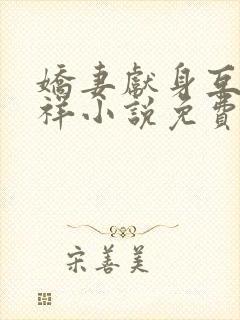 嬌妻獻身互
祥小說免費
宋善美